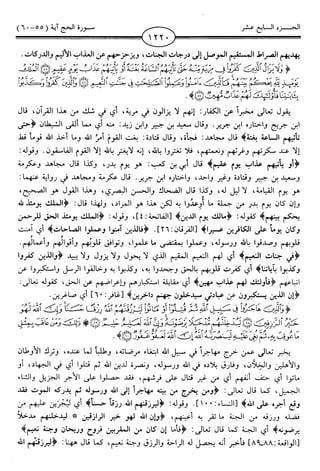 الجزء السابع عشر
١٢٢٠
سورة الحج آية (٥٥-٦٠)
يهديهم الصراط المستقيم الموصل إلى درجات الجنات، ويزحزحهم عن العذاب الأليم والدركات.
يقول تعالى مخبراً عن الكفار: إنهم لا يزالون في مرية، أي في شك من هذا القرآن، قال
ابن جريج واختاره ابن جرير. وقال سعيد بن جبير وابن زيد: منه أي مما ألقى الشيطان ﴿حتى
تأتيهم الساعة بغتة﴾ قال مجاهد: فجأة، وقال قتادة: بغت القوم أمر الله وما أخذ الله قوماً قط
إلا عند سكرتهم وغرتهم ونعمتهم، فلا تغتروا بالله، إنه لا يغتر بالله إلا القوم الفاسقون. وقوله:
﴿أو يأتيهم عذاب يوم عقيم﴾ قال أبي بن كعب: هو يوم بدر، وكذا قال مجاهد وعكرمة
وسعيد بن جبير وقتادة وغير واحد، واختاره ابن جرير. قال عكرمة ومجاهد في رواية عنهما:
هو يوم القيامة، لا ليل له، وكذا قال الضحاك والحسن البصري، وهذا القول هو الصحيح،
وإن كان يوم بدر من جملة ما أوعدوا به لكن هذا هو المراد، ولهذا قال: ﴿الملك يومئذ لله
يحكم بينهم﴾ كقوله: ﴿مالك يوم الدين﴾ [الفاتحة: ٤]، وقوله: ﴿الملك يومئذ الحق للرحمن
وكان يوماً على الكافرين عسيرا﴾ [الفرقان: ٢٦]. ﴿فالذين آمنوا وعملوا الصالحات﴾ أي آمنت
قلوبهم وصدقوا بالله ورسوله، وعملوا بمقتضى ما علموا، وتوافق قلوبهم وأقوالهم وأعمالهم.
﴿في جنات النعيم﴾ أي لهم النعيم المقيم الذي لا يحول ولا يزول ولا يبيد ﴿والذين كفروا
وكذبوا بآياتنا﴾ أي كفرت قلوبهم بالحق وجحدوا به، وكذبوا به وخالفوا الرسل واستكبروا عن
اتباعهم ﴿فأولئك لهم عذاب مهين﴾ أي مقابلة استكبارهم وإعراضهم عن الحق، كقوله تعالى:
﴿إن الذين يستكبرون عن عبادتي سيدخلون جهنم داخرين﴾ [غافر: ٦٠] أي صاغرين.
يخبر تعالى عمن خرج مهاجراً في سبيل الله ابتغاء مرضاته، وطلباً لما عنده، وترك الأوطان
والأهلين والخلان، وفارق بلاده في الله ورسوله، ونصرة لدين الله ثم قتلوا أي في الجهاد، أو
ماتوا أي حتف أنفهم أي من غير قتال على فرشهم، فقد حصلوا على الأجر الجزيل والثناء
الجميل، كما قال تعالى: ﴿ومن يخرج من بيته مهاجراً إلى الله ورسوله ثم يدركه الموت فقد
وقع أجره على الله﴾ [النساء: ١٠٠]. وقوله: ﴿ليرزقنهم الله رزقاً حسناً﴾ أي ليجرين عليهم من
فضله ورزقه من الجنة ما تقر به أعينهم، ﴿وإن الله لهو خير الرازقين * ليدخلنهم مدخلاً
يرضونه﴾ أي الجنة كما قال تعالى: ﴿فأما إن كان من المقربين فروح وريحان وجنة نعيم﴾
[الواقعة: ٨٨، ٨٩] فأخبر أنه يحصل له الراحة والرزق وجنة نعيم، كما قال ههنا: ﴿ليرزقنهم الله